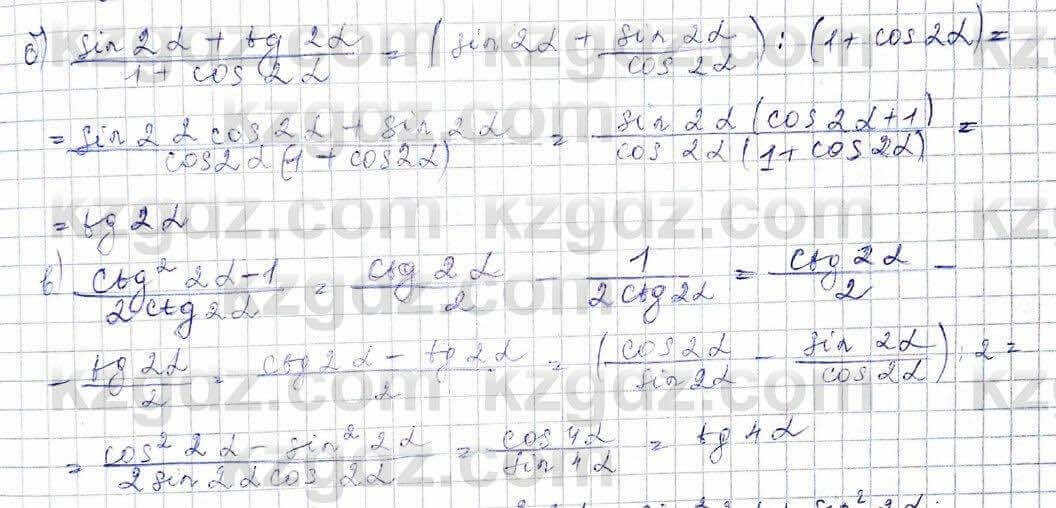 б) (sin 2α + tg 2α)/(1 + cos 2α) = (sin 2α + sin 2α/cos 2α) : (1 + cos 2α) =
= (sin 2 2 cos 2α + sin 2α)/(cos 2α (1 + cos 2α)) = (sin 2α (cos 2α + 1))/(cos 2α (1 + cos 2α)) =
= tg 2α
в) (ctg² 2α - 1)/(2 ctg 2α) = ctg 2α/2 - 1/(2 ctg 2α) = ctg 2α/2 -
- tg 2α/2 = (ctg 2α - tg 2α)/2 = (cos 2α/sin 2α - sin 2α/cos 2α) : 2 =
= (cos² 2α - sin² 2α)/(2 sin 2α cos 2α) = cos 4α/sin 4α = tg 4α
kzgdz.com